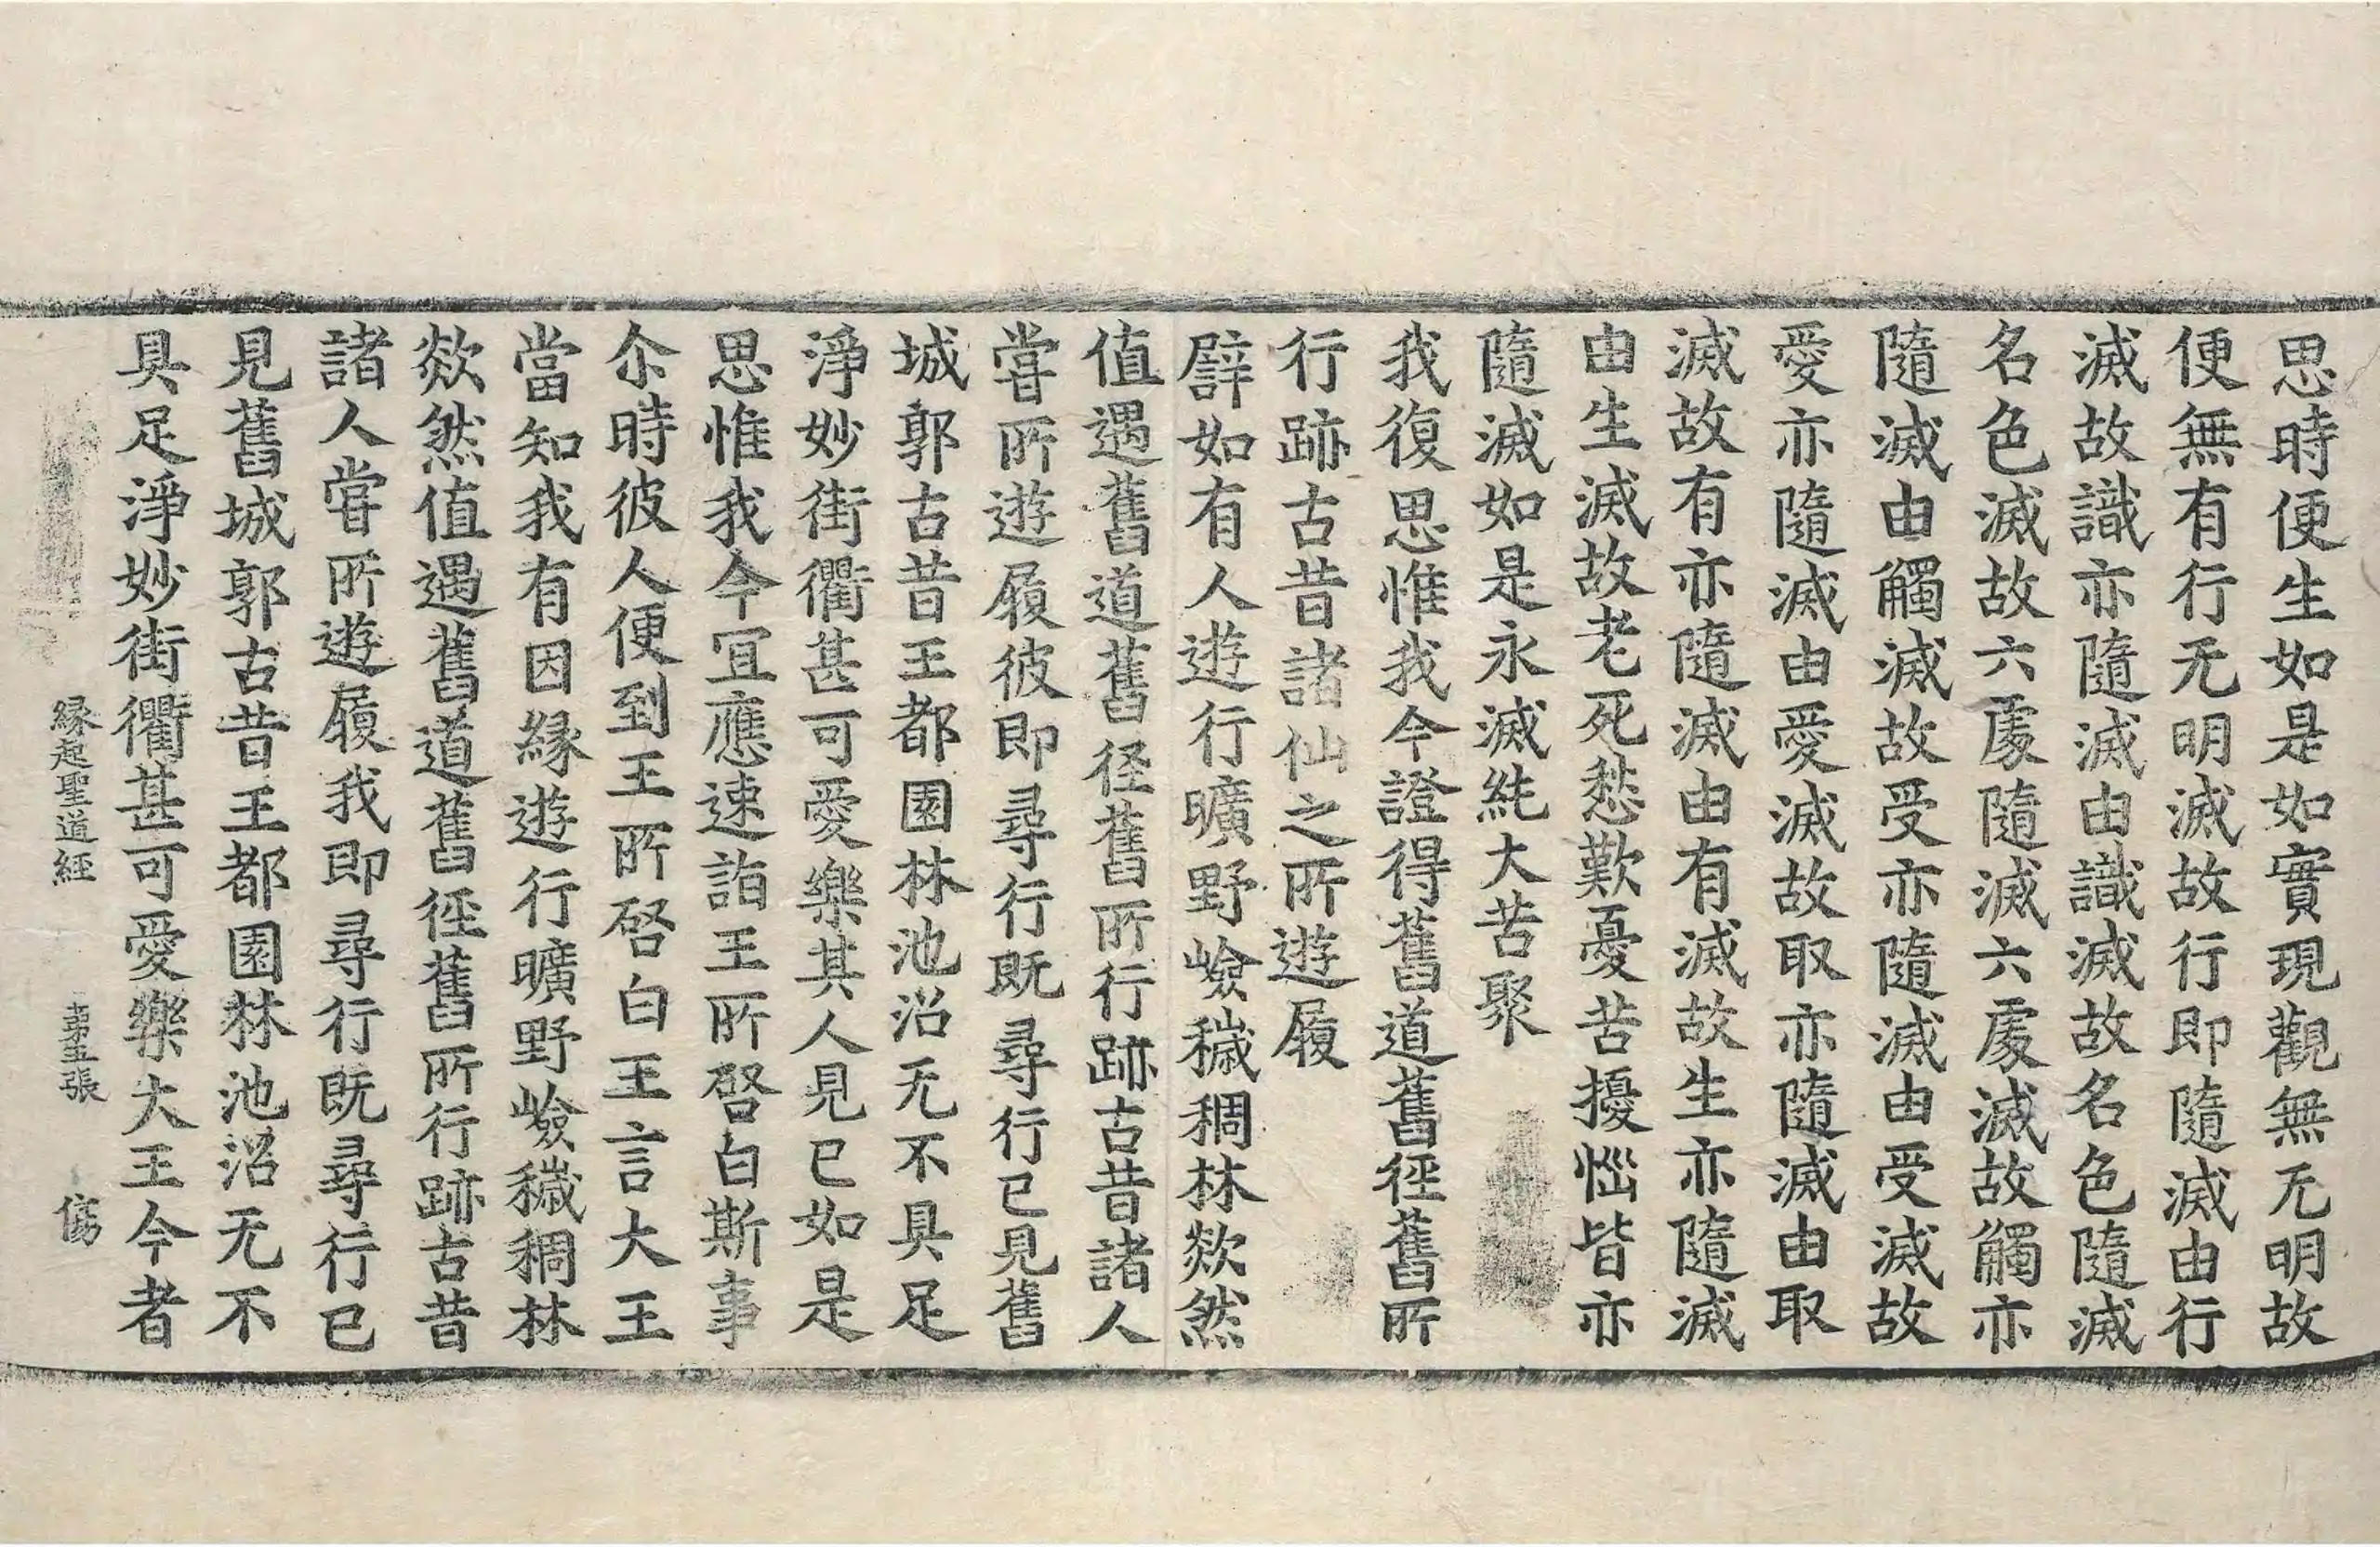 思時便生如是如實現觀無无明故
便無有行无明滅故行即隨滅由行
滅故識亦隨滅由識滅故名色隨滅
名色滅故六處隨滅六處滅故觸亦
隨滅由觸滅故受亦隨滅由受滅故
愛亦隨滅由愛滅故取亦隨滅由取
滅故有亦隨滅由有滅故生亦隨滅
由生滅故老死愁歎憂苦擾惱皆亦
隨滅如是永滅純大苦聚
我復思惟我今證得舊道舊徑舊所
行跡古昔諸仙之所遊履
譬如有人遊行曠野嶮穢稠林欻然
值遇舊道舊径舊所行跡古昔諸人
嘗所遊履彼即尋行既尋行已見舊
城郭古昔王都園林池沼无不具足
淨妙街衢甚可愛樂其人見已如是
思惟我今宜應速詣王所啓白斯事
尒時彼人便到王所啓白王言大王
當知我有因緣遊行曠野嶮穢稠林
欻然值遇舊道舊徑舊所行跡古昔
諸人嘗所遊履我即尋行既尋行已
見舊城郭古昔王都園林池沼无不
具足淨妙街衢甚可愛樂大王今者
緣起聖道經 第五張 傷